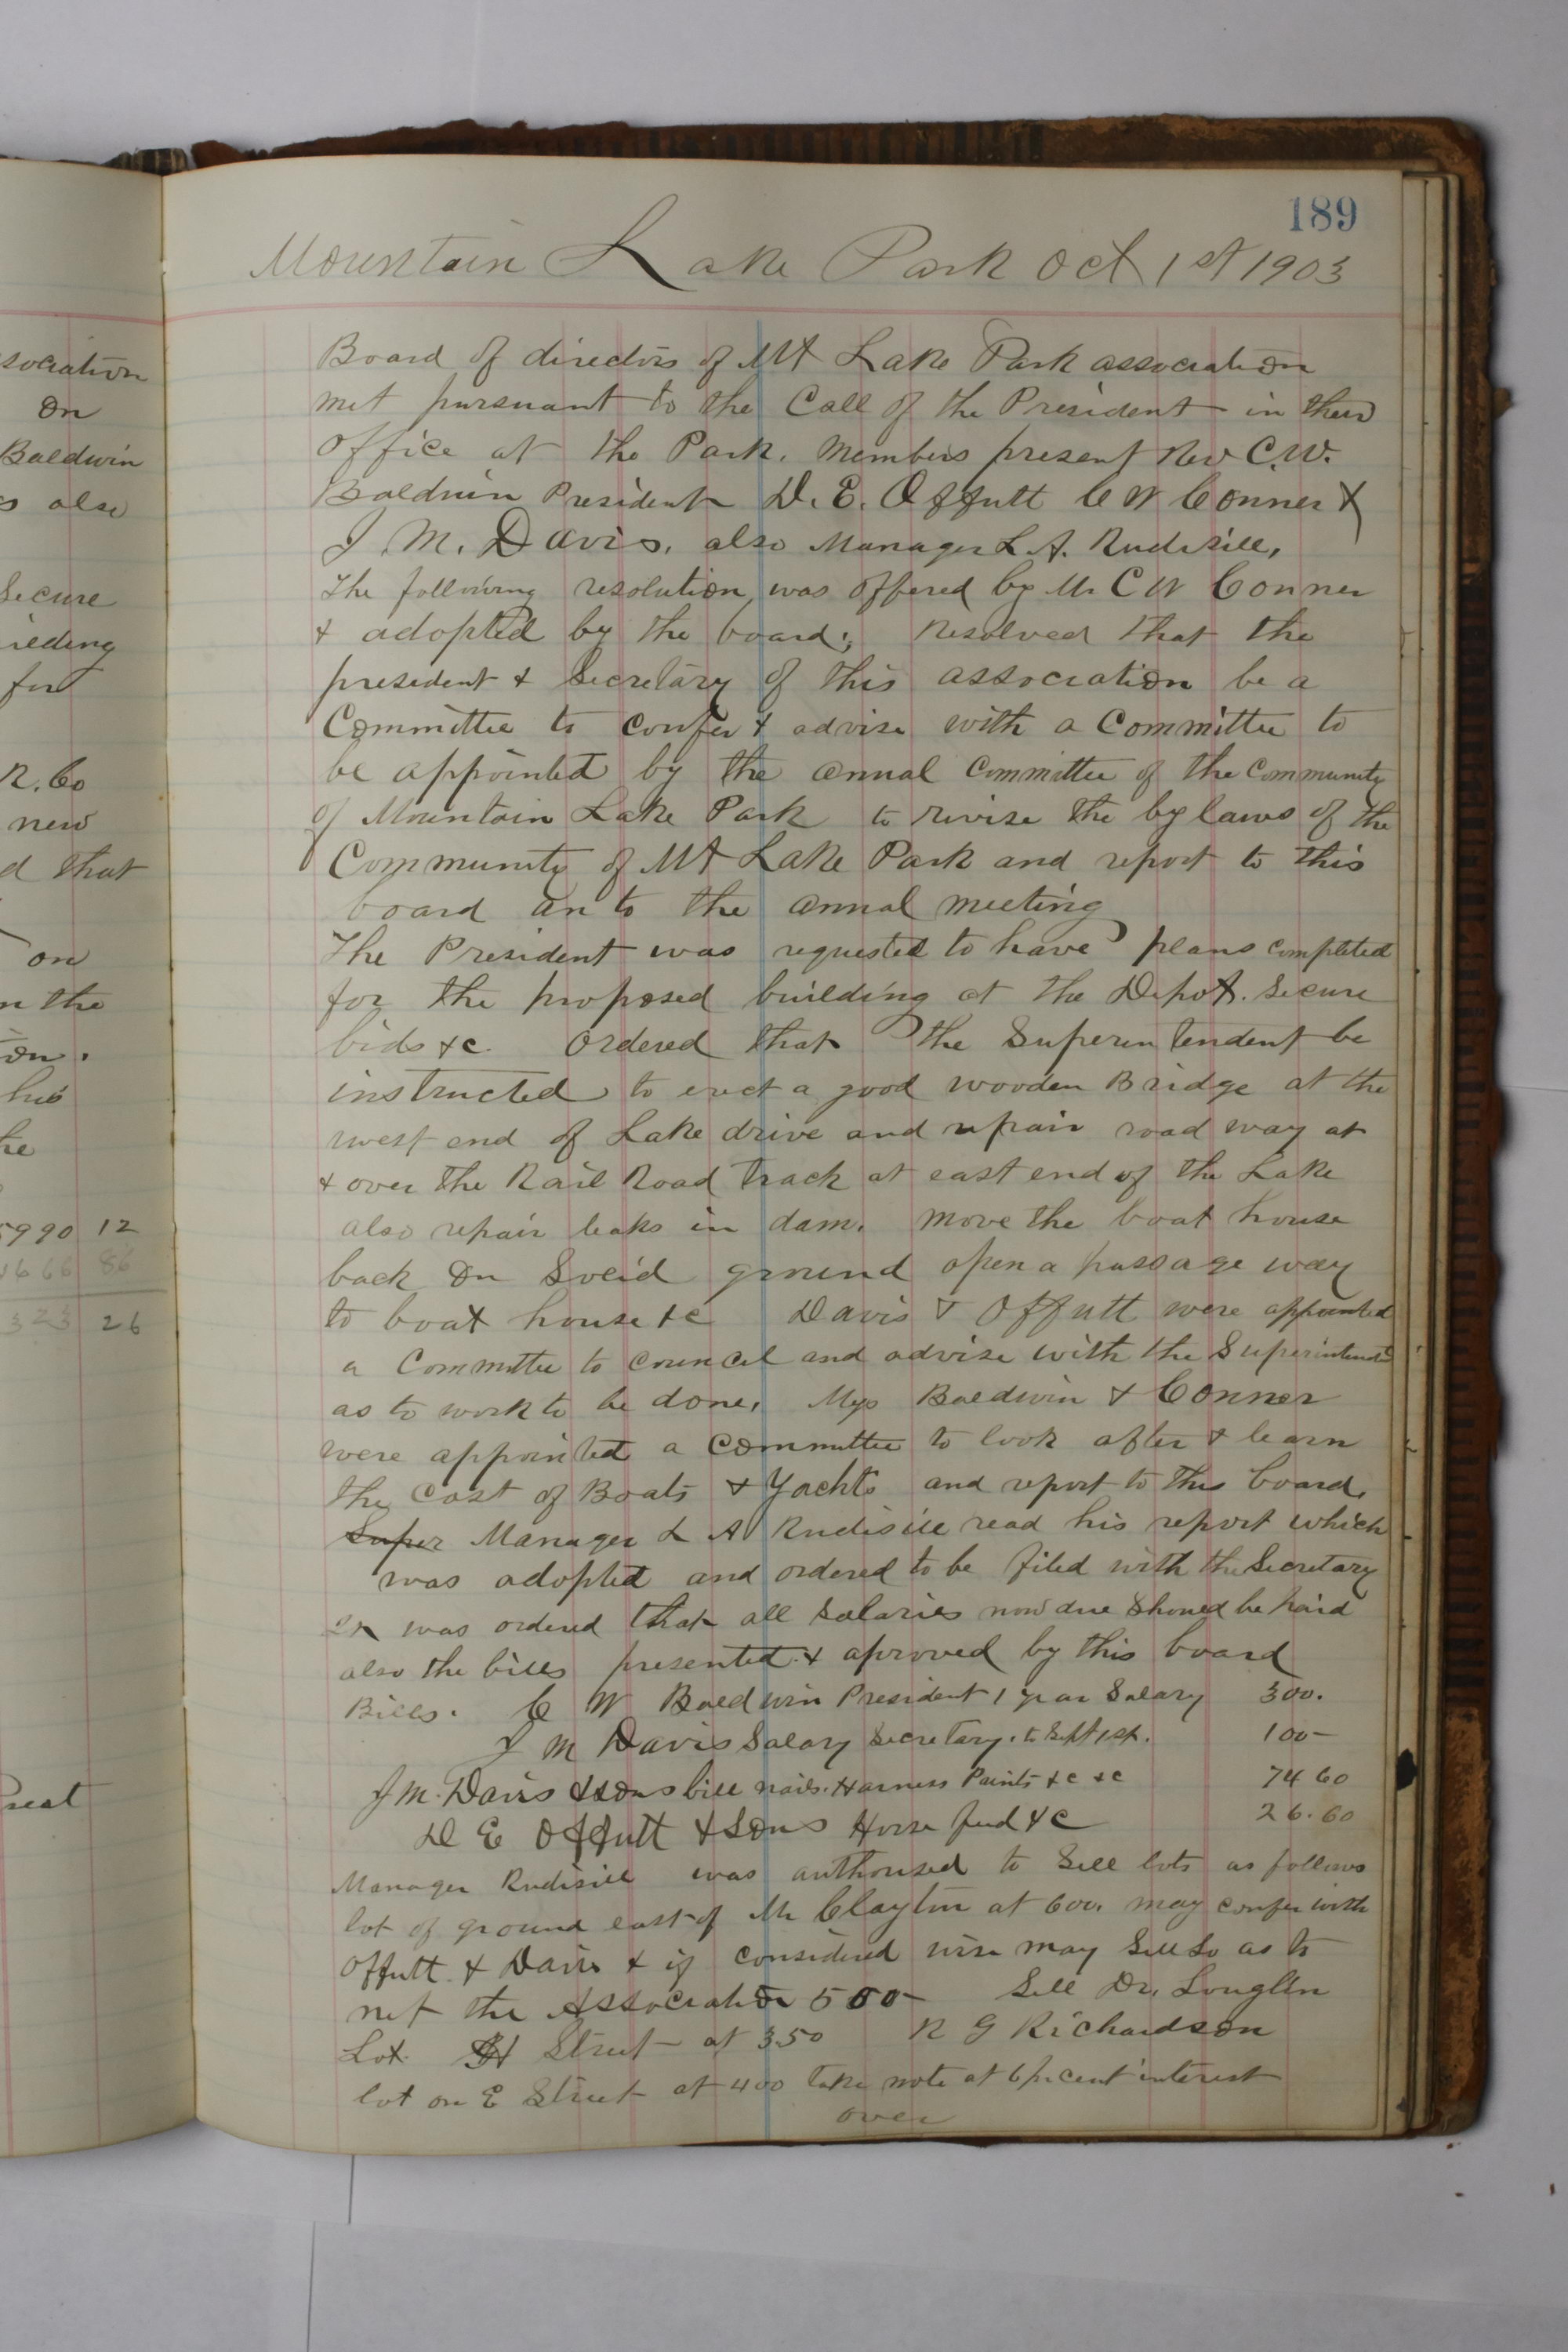 sociation
on
Baldwin
s also
Secure
ilding
for
R. Co
new
d that
on
n the
on.
his
he
5990 12
1666 86
323 26
reat
189
Mountain Lake Park Oct 1st 1903
Board of directors of Mt Lake Park association
met pursuant to the Call of the President in their
office at the Park. Members present Rev C.W.
Baldwin President D. E. Offutt C W Conner &
J. M. Davis. also Manager L. A. Rudisill,
The following resolution was offered by Mr C W Conner
& adopted by the board; Resolved that the
president & Secretary of this association be a
Committee to confer & advise with a Committee to
be appointed by the annual Committee of the Community
of Mountain Lake Park to revise the by laws of the
Community of Mt Lake Park and report to this
board an to the annual meeting
The President was requested to have plans completed
for the proposed building at the Depot. Secure
bids &c Ordered that the Superintendent be
instructed to erect a good wooden Bridge at the
west end of Lake drive and repair road way at
& over the Rail Road Track at east end of the Lake
also repair leaks in dam. Move the boat house
back on Solid ground open a passage way
to boat house &c Davis & Offutt were appointed
a Committee to council and advise with the Superintendt
as to work to be done, Mgs Baldwin & Conner
were appointed a Committee to look after & learn
the Cost of Boats & Yachts and report to this board,
Super Manager L A Rudisill read his report which
was adopted and ordered to be filed with the Secretary
It was ordered that all Salaries now due Should be paid
also the bills presented & aproved by this board
Bills. C W Baldwin President 1 year Salary 300.
J M Davis Salary Secretary. to Sept 1st. 100-
J M. Davis & sons bill nails. Harness Paints &c &c 74 60
D E Offutt & Sons Horse feed &c 26.60
Manager Rudisill was authorised to Sell lots as follows
lot of ground east of Mr Clayton at 600. may confer with
Offutt & Davis & if considered wise may Sell So as to
net the Association 500- Sell Dr. Louglin
Lot H Street at 350 R G Richardson
lot on E Street at 400 take note at 6 per cent interest
over